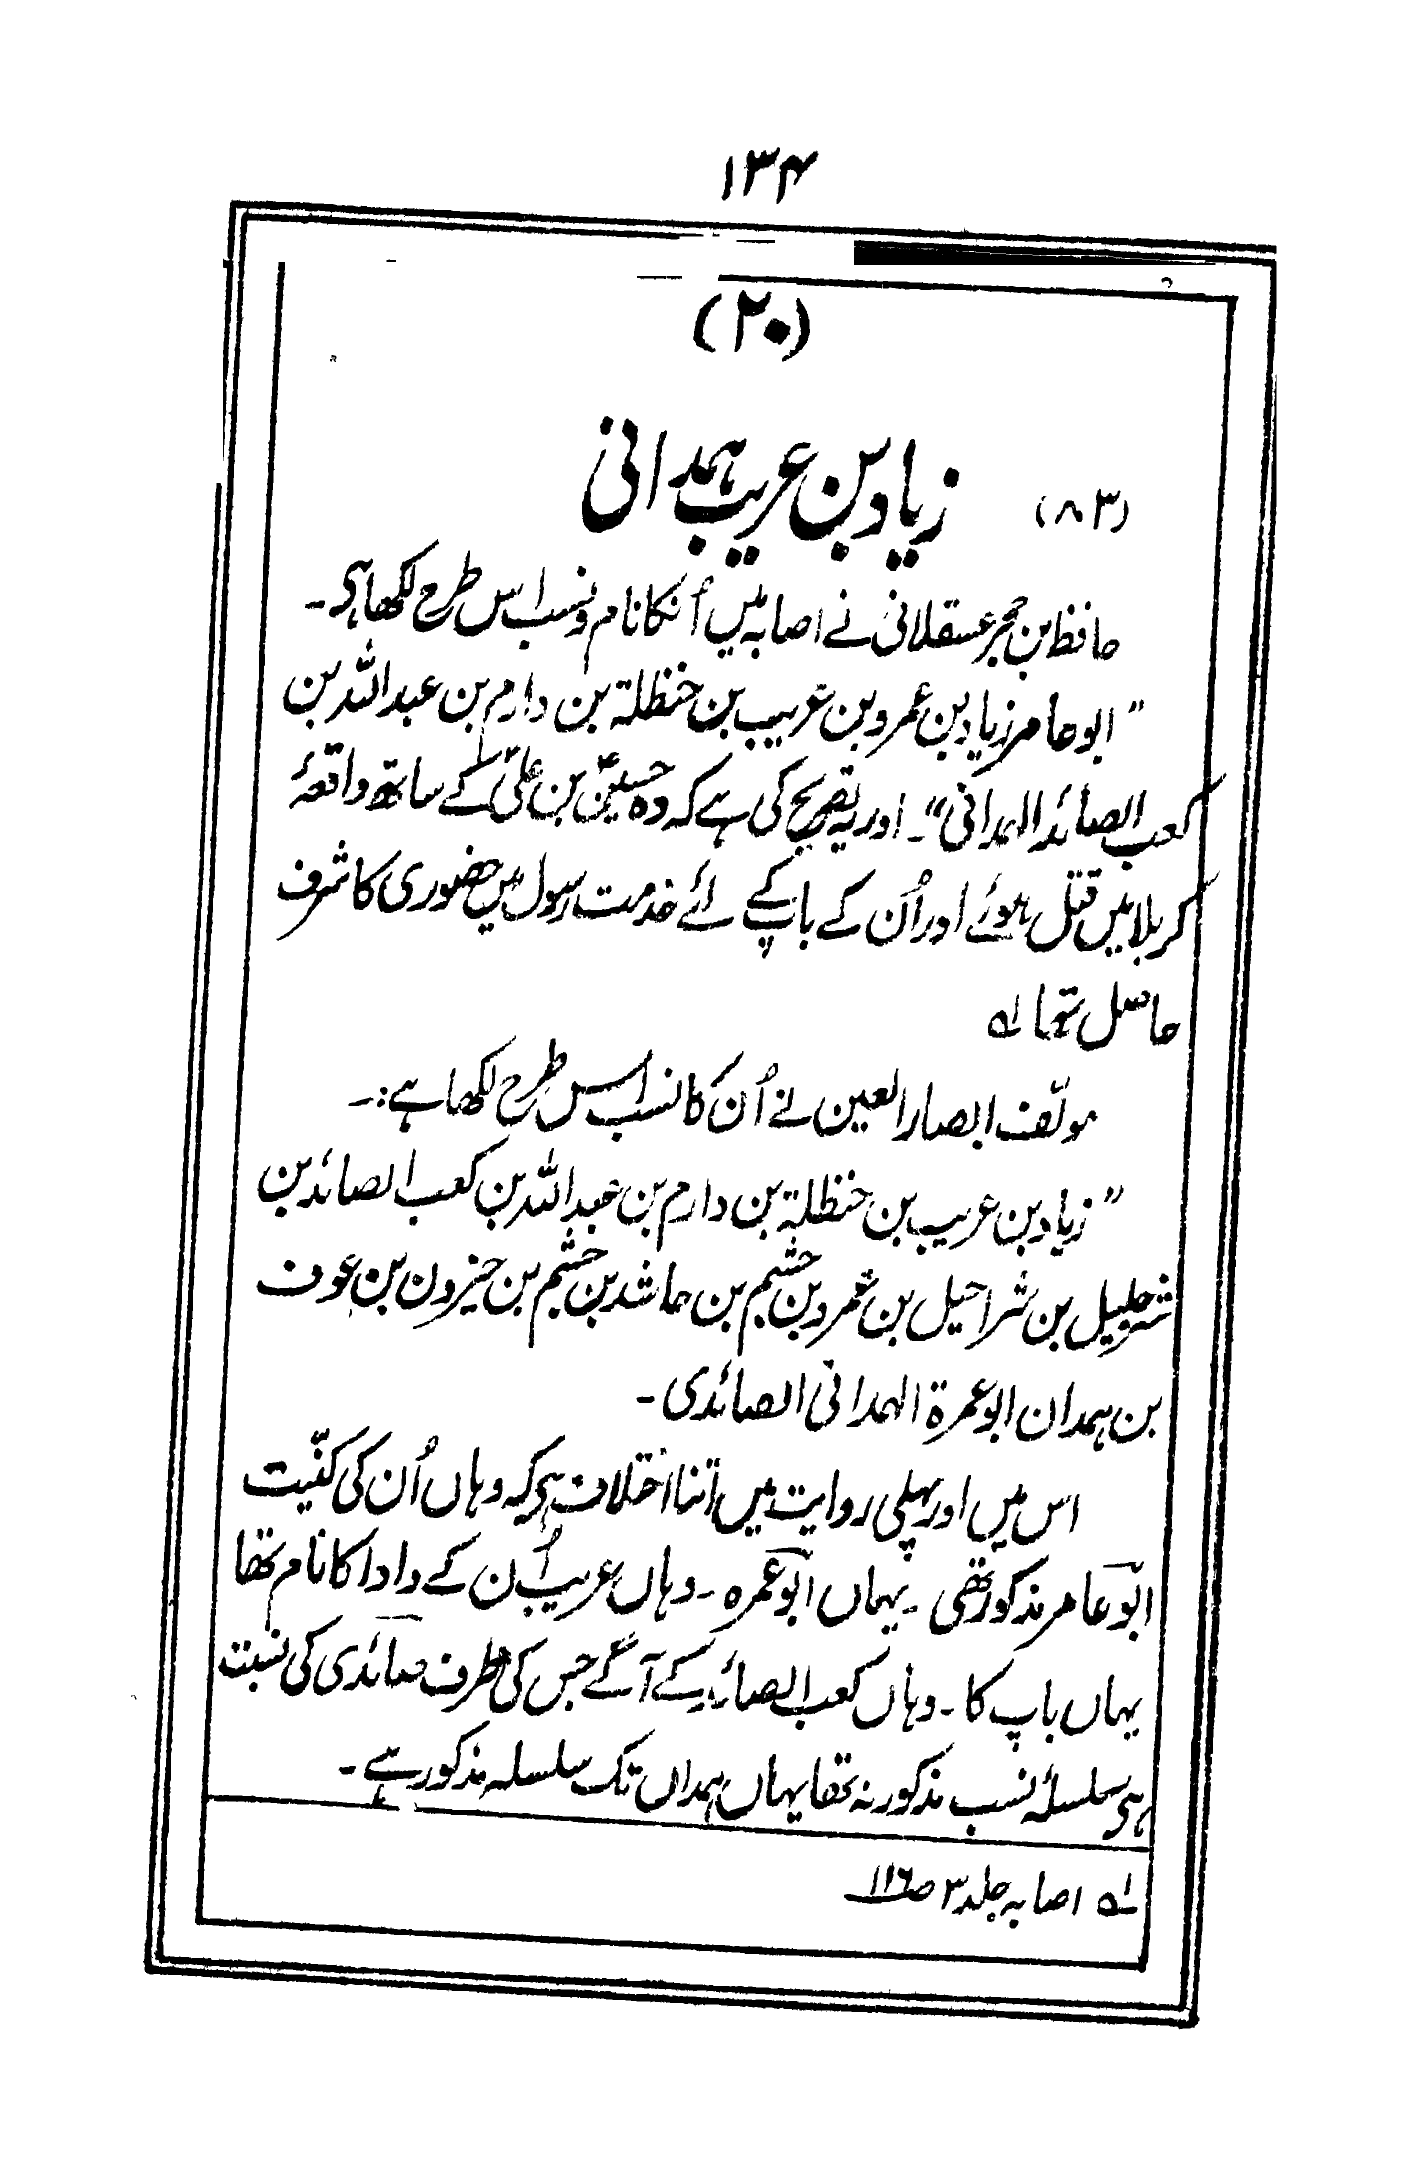 ۱۳۴
(۲۰)
(۸۳) زیاد بن عریب ہمدانی
حافظ بن حجر عسقلانی نے اصابہ میں اُنکا نام و نسب اس طرح لکھا ہی۔
” ابو عامر زیاد بن عمرو بن عریب بن حنظلۃ بن دارم بن عبد اللہ بن
کعب الصائد الہمدانی“۔ اور یہ تصریح کی ہے کہ وہ حسینؑ بن علیؑ کے ساتھ واقعۂ
کربلا میں قتل ہوئے اور اُن کے باپ کے لئے خدمت رسول میں حضوری کا شرف
حاصل تھا لہ
مولّف ابصار العین نے اُن کا نسب اس طرح لکھا ہے:۔
” زیاد بن عریب بن حنظلۃ بن دارم بن عبد اللہ بن کعب الصائد بن
شرحبیل بن شراحیل بن عمرو بن جشم بن حاشد بن جشم بن حیزون بن عوف
بن ہمدان ابو عمرۃ الہمدانی الصائدی۔
اس میں اور پہلی روایت میں اتنا اختلاف ہی کہ وہاں اُن کی کنّیت
ابو عامر مذکور تھی۔ یہاں ابو عمرہ۔ وہاں عریب اُن کے دادا کا نام تھا
یہاں باپ کا۔ وہاں کعب الصائد کے آگے جس کی طرف صائدی کی نسبت
ہی سلسلۂ نسب مذکور نہ تھا یہاں ہمداں تک سلسلہ مذکور ہے۔
لہ اصابہ جلد ۳ ص۱۱۶